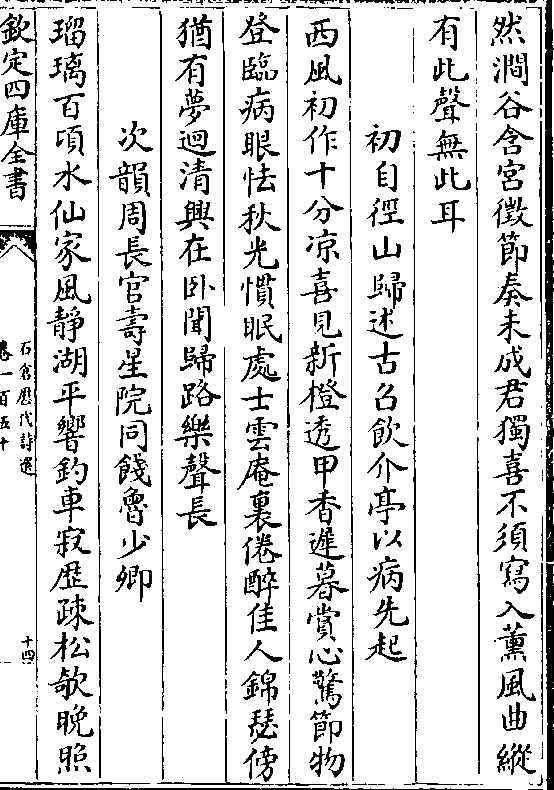 然澗谷含宮徵節奏未成君獨喜不須寫入薰風曲縱
有此聲無此耳
初自徑山歸述古召飲介亭以病先起
西風初作十分凉喜見新橙透甲香遲暮賞心驚節物
登臨病眼怯秋光慣眠處士雲庵裏倦醉佳人錦瑟傍
猶有夢迴清興在卧聞歸路樂聲長
次韻周長官壽星院同餞魯少卿
瑠璃百頃水仙家風靜湖平響釣車寂歴疎松欹晚照
欽定四庫全書
石倉歷代詩選
卷一百五十
十四